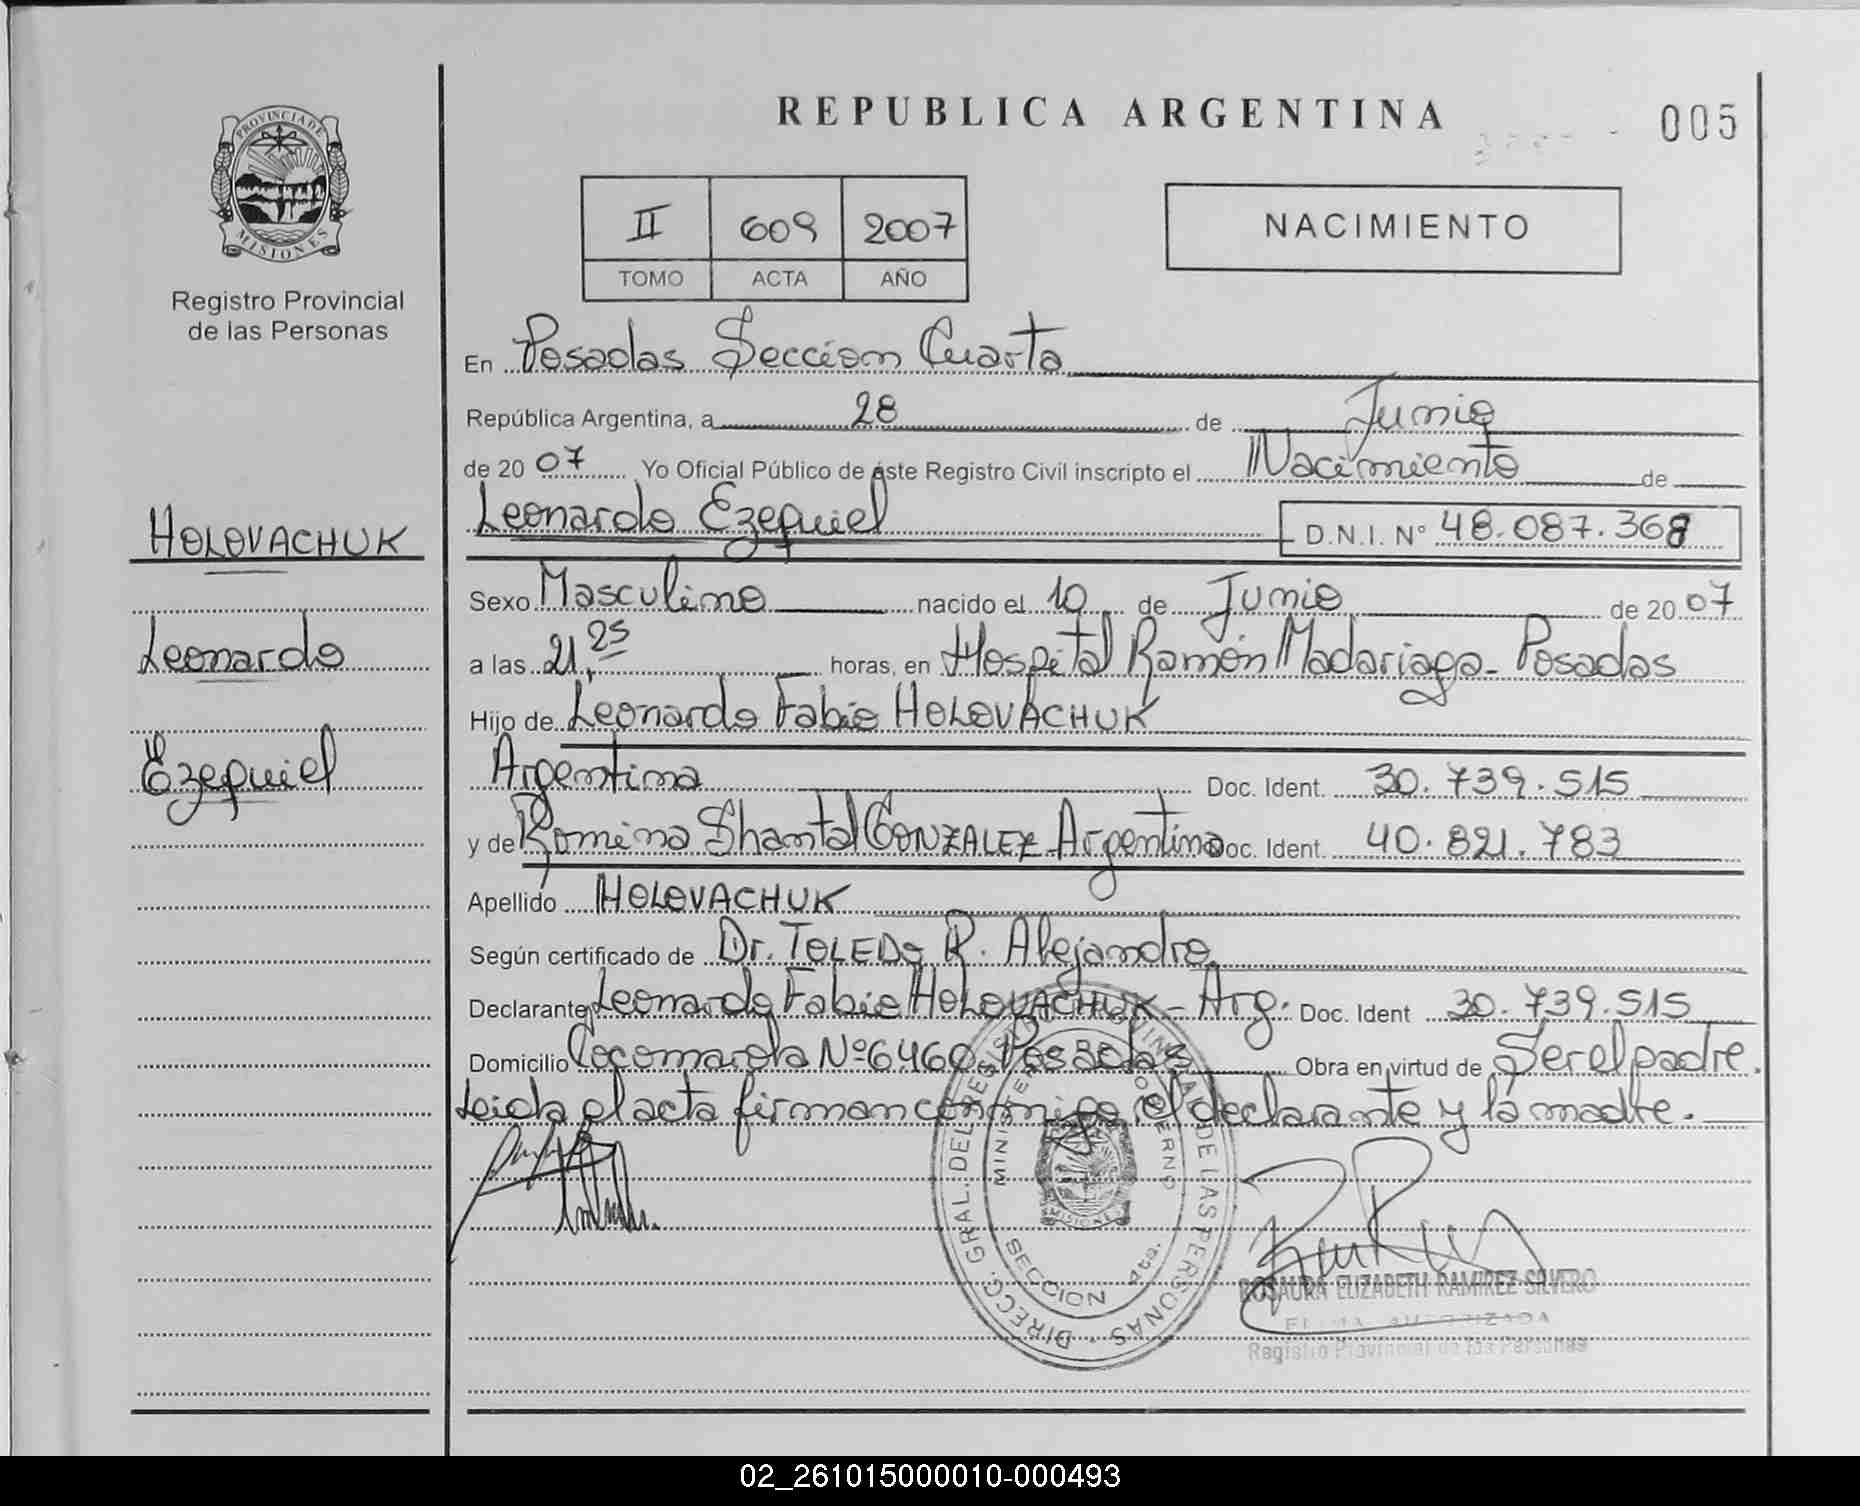 REPUBLICA ARGENTINA
005
PROVINCIA DE
MISIONES
Registro Provincial
de las Personas
II 609 2007
TOMO ACTA AÑO
NACIMIENTO
En Posadas Seccion Cuarta
República Argentina, a 28 de Junio
de 20 07 Yo Oficial Público de éste Registro Civil inscripto el Nacimiento de
Leonardo Ezequiel D.N.I. N° 48.087.368
HOLOVACHUK
Leonardo
Ezequiel
Sexo Masculino nacido el 10 de Junio de 20 07
a las 21,25 horas, en Hospital Ramón Madariaga - Posadas
Hijo de Leonardo Fabio HOLOVACHUK
Argentina Doc. Ident. 30.739.515
y de Romina Shantal GONZALEZ - Argentina Doc. Ident. 40.821.783
Apellido HOLOVACHUK
Según certificado de Dr. TOLEDO R. Alejandro
Declarante Leonardo Fabio HOLOVACHUK - Arg. Doc. Ident 30.739.515
Domicilio Cocomarola Nº 6460 Posadas Obra en virtud de Ser el padre.
Leida el acta firman conmigo el declarante y la madre.
DIRECC. GRAL. DEL REGISTRO PROVINCIAL DE LAS PERSONAS
MINISTERIO DE GOBIERNO
MISIONES
SECCION 4ta.
ROSAURA ELIZABETH RAMIREZ SILVERO
FIRMA AUTORIZADA
Registro Provincial de las Personas
02_261015000010-000493